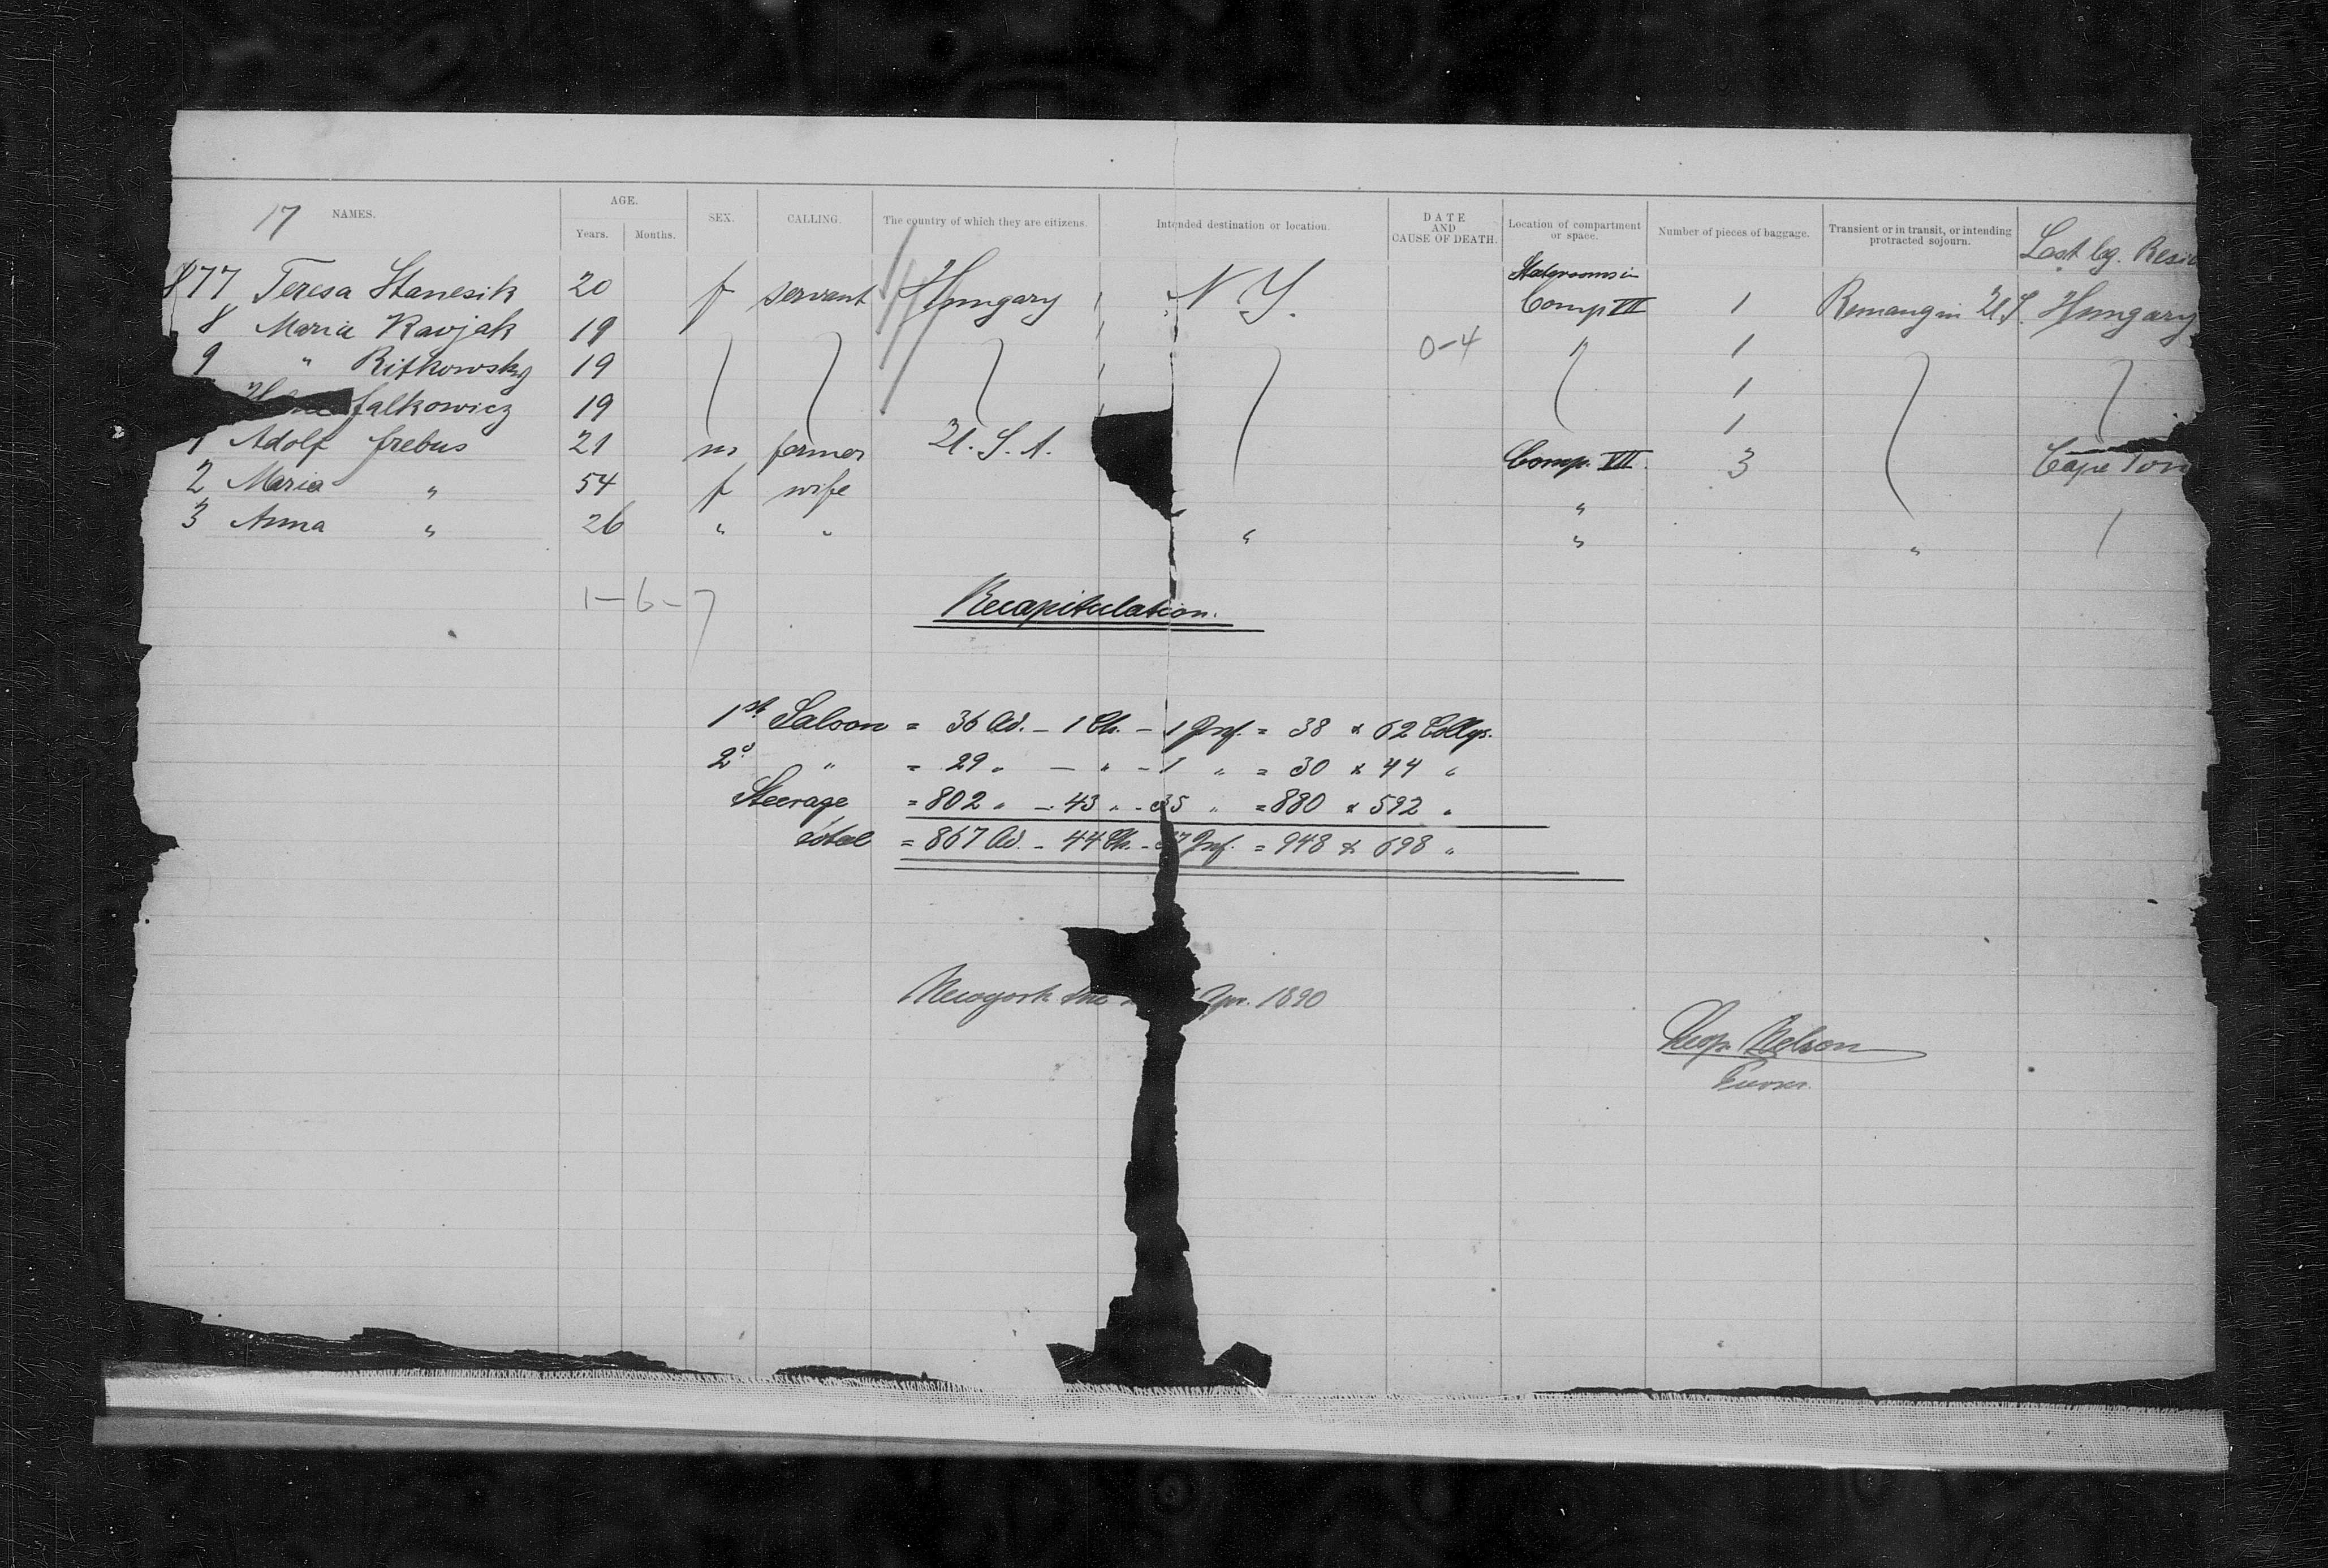 17 NAMES. AGE. Years. Months. SEX. CALLING. The country of which they are citizens. Intended destination or location. DATE AND CAUSE OF DEATH. Location of compartment or space. Number of pieces of baggage. Transient or in transit, or intending protracted sojourn. Last leg. Resi
877 Teresa Stanesik 20 f servant Hungary N. Y. Staterooms in Comp VII 1 Remang in U.S. Hungary
8 Maria Ravjak 19 0-4 " 1
9 " Ritkowsky 19 1
falkowicz 19 1
1 Adolf frebus 21 m farmer U. S. A. Comp. VII 3 Cape Tow
2 Maria " 54 f wife "
3 Anna " 26 " " " " "
1-6-7
Recapitulation.
1st Saloon = 36 Ad. - 1 Ch. - 1 Inf. = 38 & 62 Collys.
2d " = 29 " - " - 1 " = 30 & 44 "
Steerage = 802 " - 43 " - 35 " = 880 & 592 "
total = 867 Ad. - 44 Ch. - 37 Inf. = 948 & 698 "
Newyork the Apr. 1890
Nelson
Purser.